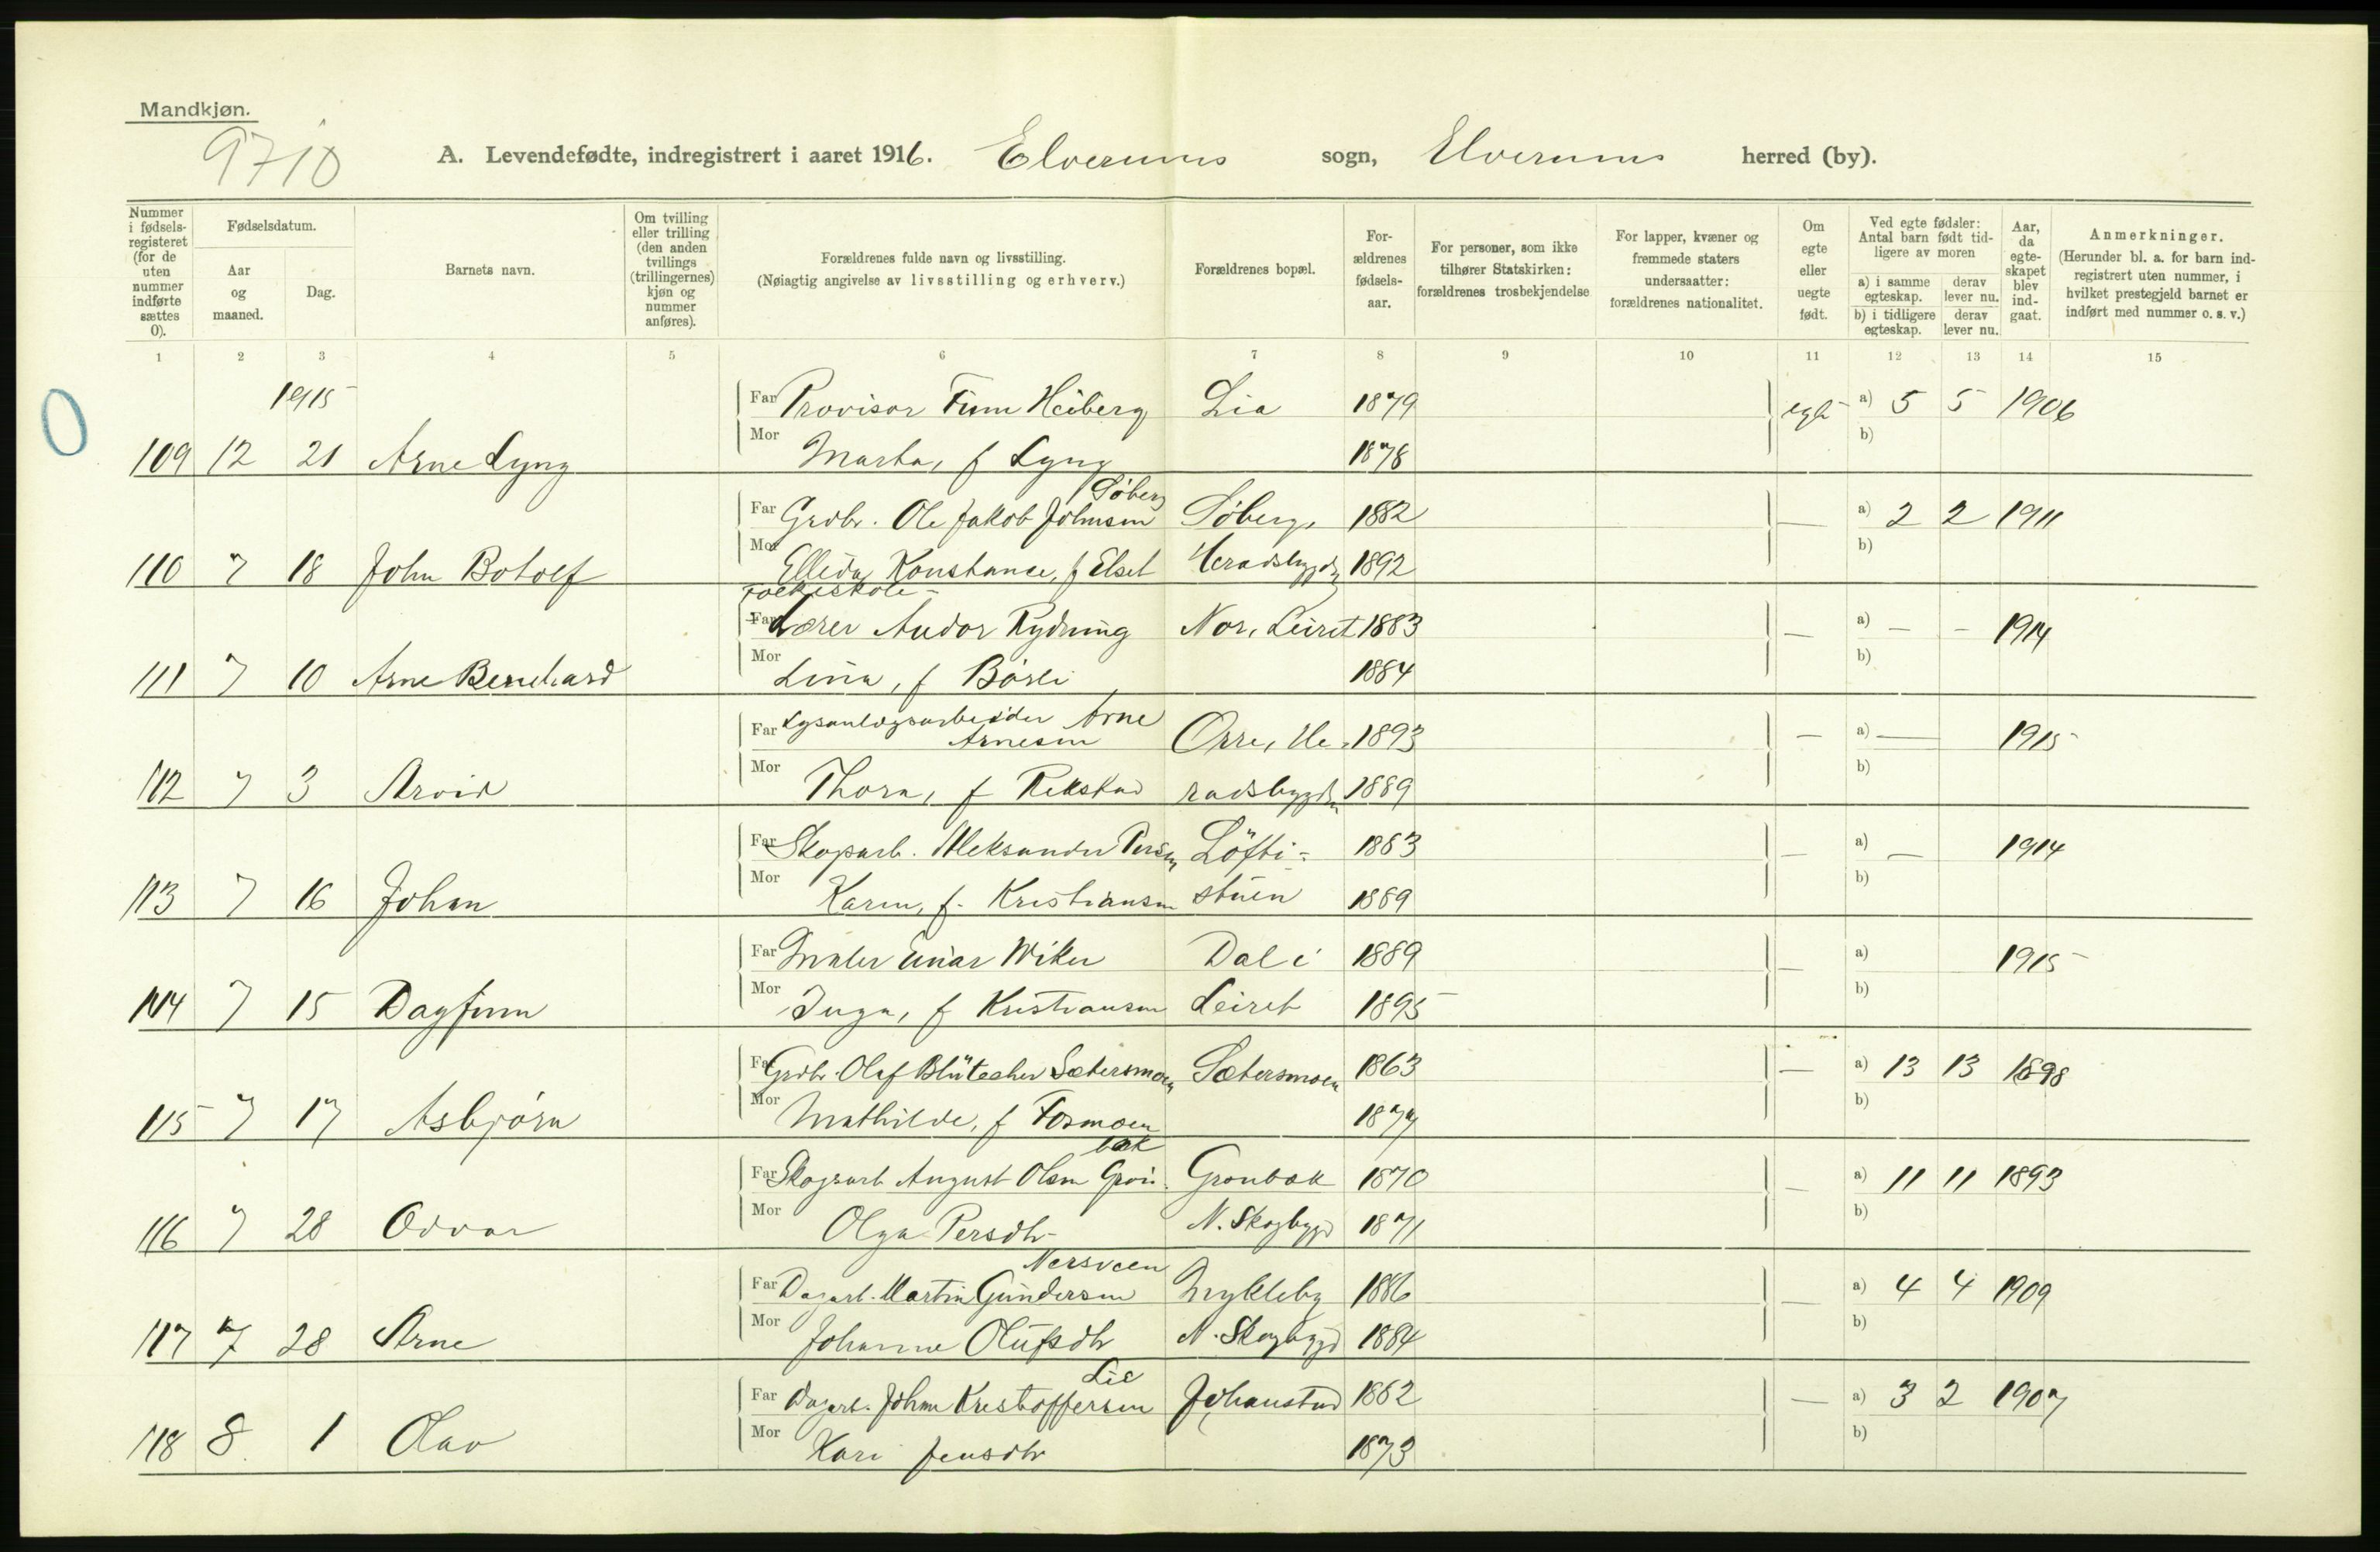 Mandkjøn.
9710
A. Levendefødte, indregistrert i aaret 1916. Elverums sogn, Elverums herred (by).
Nummer i fødsels-registeret (for de uten nummer indførte sættes 0).
Fødselsdatum.
Aar og maaned.
Dag.
Barnets navn.
Om tvilling eller trilling (den anden tvillings (trillingernes) kjøn og nummer anføres).
Forældrenes fulde navn og livsstilling.
(Nøiagtig angivelse av livsstilling og erhverv.)
Forældrenes bopæl.
For-ældrenes fødsels-aar.
For personer, som ikke tilhører Statskirken: forældrenes trosbekjendelse
For lapper, kvæner og fremmede staters undersaatter: forældrenes nationalitet.
Om egte eller uegte født.
Ved egte fødsler: Antal barn født tid-ligere av moren
a) i samme egteskap.
derav lever nu.
b) i tidligere egteskap.
derav lever nu.
Aar, da egte-skapet blev ind-gaat.
Anmerkninger.
(Herunder bl. a. for barn ind-registrert uten nummer, i hvilket prestegjeld barnet er indført med nummer o. s. v.)
1 2 3 4 5 6 7 8 9 10 11 12 13 14 15
0
1915
Far Provisor Finn Heiberg Lia 1879 egte a) 5 5 1906
109 12 21 Arne Lyng Mor Marta, f Lyng 1878 b)
Søberg
Far Grdbr. Ole Jakob Johnsen Søberg, 1882 — a) 2 2 1911
110 7 18 John Botolf Mor Ellida Konstance, f Elset Heradsbygda 1892 b)
Folkeskole-
Far Lærer Andor Rydning Nor, Leiret 1883 — a) — - 1914
111 7 10 Arne Bernhard Mor Lina, f Børli 1884 b)
Far Lysanlægsarbeider Arne
Arnesen Orre, He- 1893 — a) — 1915
112 7 3 Arvid Mor Thora, f Rekstad radsbygda 1889 b)
Far Skogarb. Aleksander Persen Löfti- 1883 — a) — 1914
113 7 16 Johan Mor Karen, f. Kristiansen stuen 1889 b)
Far Maler Einar Wiker Dal i 1889 — a) 1915
114 7 15 Dagfinn Mor Inga, f Kristiansen Leiret 1895 b)
Far Grdbr. Olaf Blütecher Sætersmoen Sætersmoen 1863 — a) 13 13 1898
115 7 17 Asbjørn Mor Mathilde, f Formoen 1877 b)
bæk
Far Skogsarb August Olsen Grøn- Grønbæk 1870 — a) 11 11 1893
116 7 28 Odvar Mor Olga Persdtr N. Skogbygd 1871 b)
Nersveen
Far Dagarb. Martin Gundersen Mykleby 1886 — a) 4 4 1909
117 7 28 Arne Mor Johanne Olufsdtr N. Skogbygd 1884 b)
Lie
Far Dagarb. Johan Kristoffersen Johanstad 1862 — a) 3 2 1907
118 8 1 Olav Mor Kari Jensdtr 1873 b)